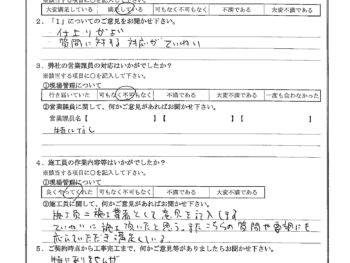 ※該当する項目に○を記入して下さい。
大変満足している 満足している 可もなく不可もなく 不満である 大変不満である
2.「1」についてのご意見をお聞かせ下さい。
・仕上りがよい
・質問に対する対応がていねい
3.弊社の営業課員の対応はいかがでしたか?
※該当する項目に○を記入して下さい。
①現場管理について
行き届いていた 可もなく不可もなく 不満である 大変不満である 一度も会わなかった
②営業課員に関して、何かご意見があればお聞かせ下さい。
営業課員名【 】 営業課員名【 】
特になし
4.施工員の作業内容等はいかがでしたか?
※該当する項目に○を記入して下さい。
①現場管理について
良くやってくれた 可もなく不可もなく 不満である 大変不満である
②施工員に関して、何かご意見があればお聞かせ下さい。
施工員=施工業者として意見を記入します
ていねいに施工頂いたと思う。またこちらの質問や要望にも
応えていただき満足している
5.ご契約時点から工事完工まで、何かご意見等がありましたらお聞かせ下さい。
特にありません